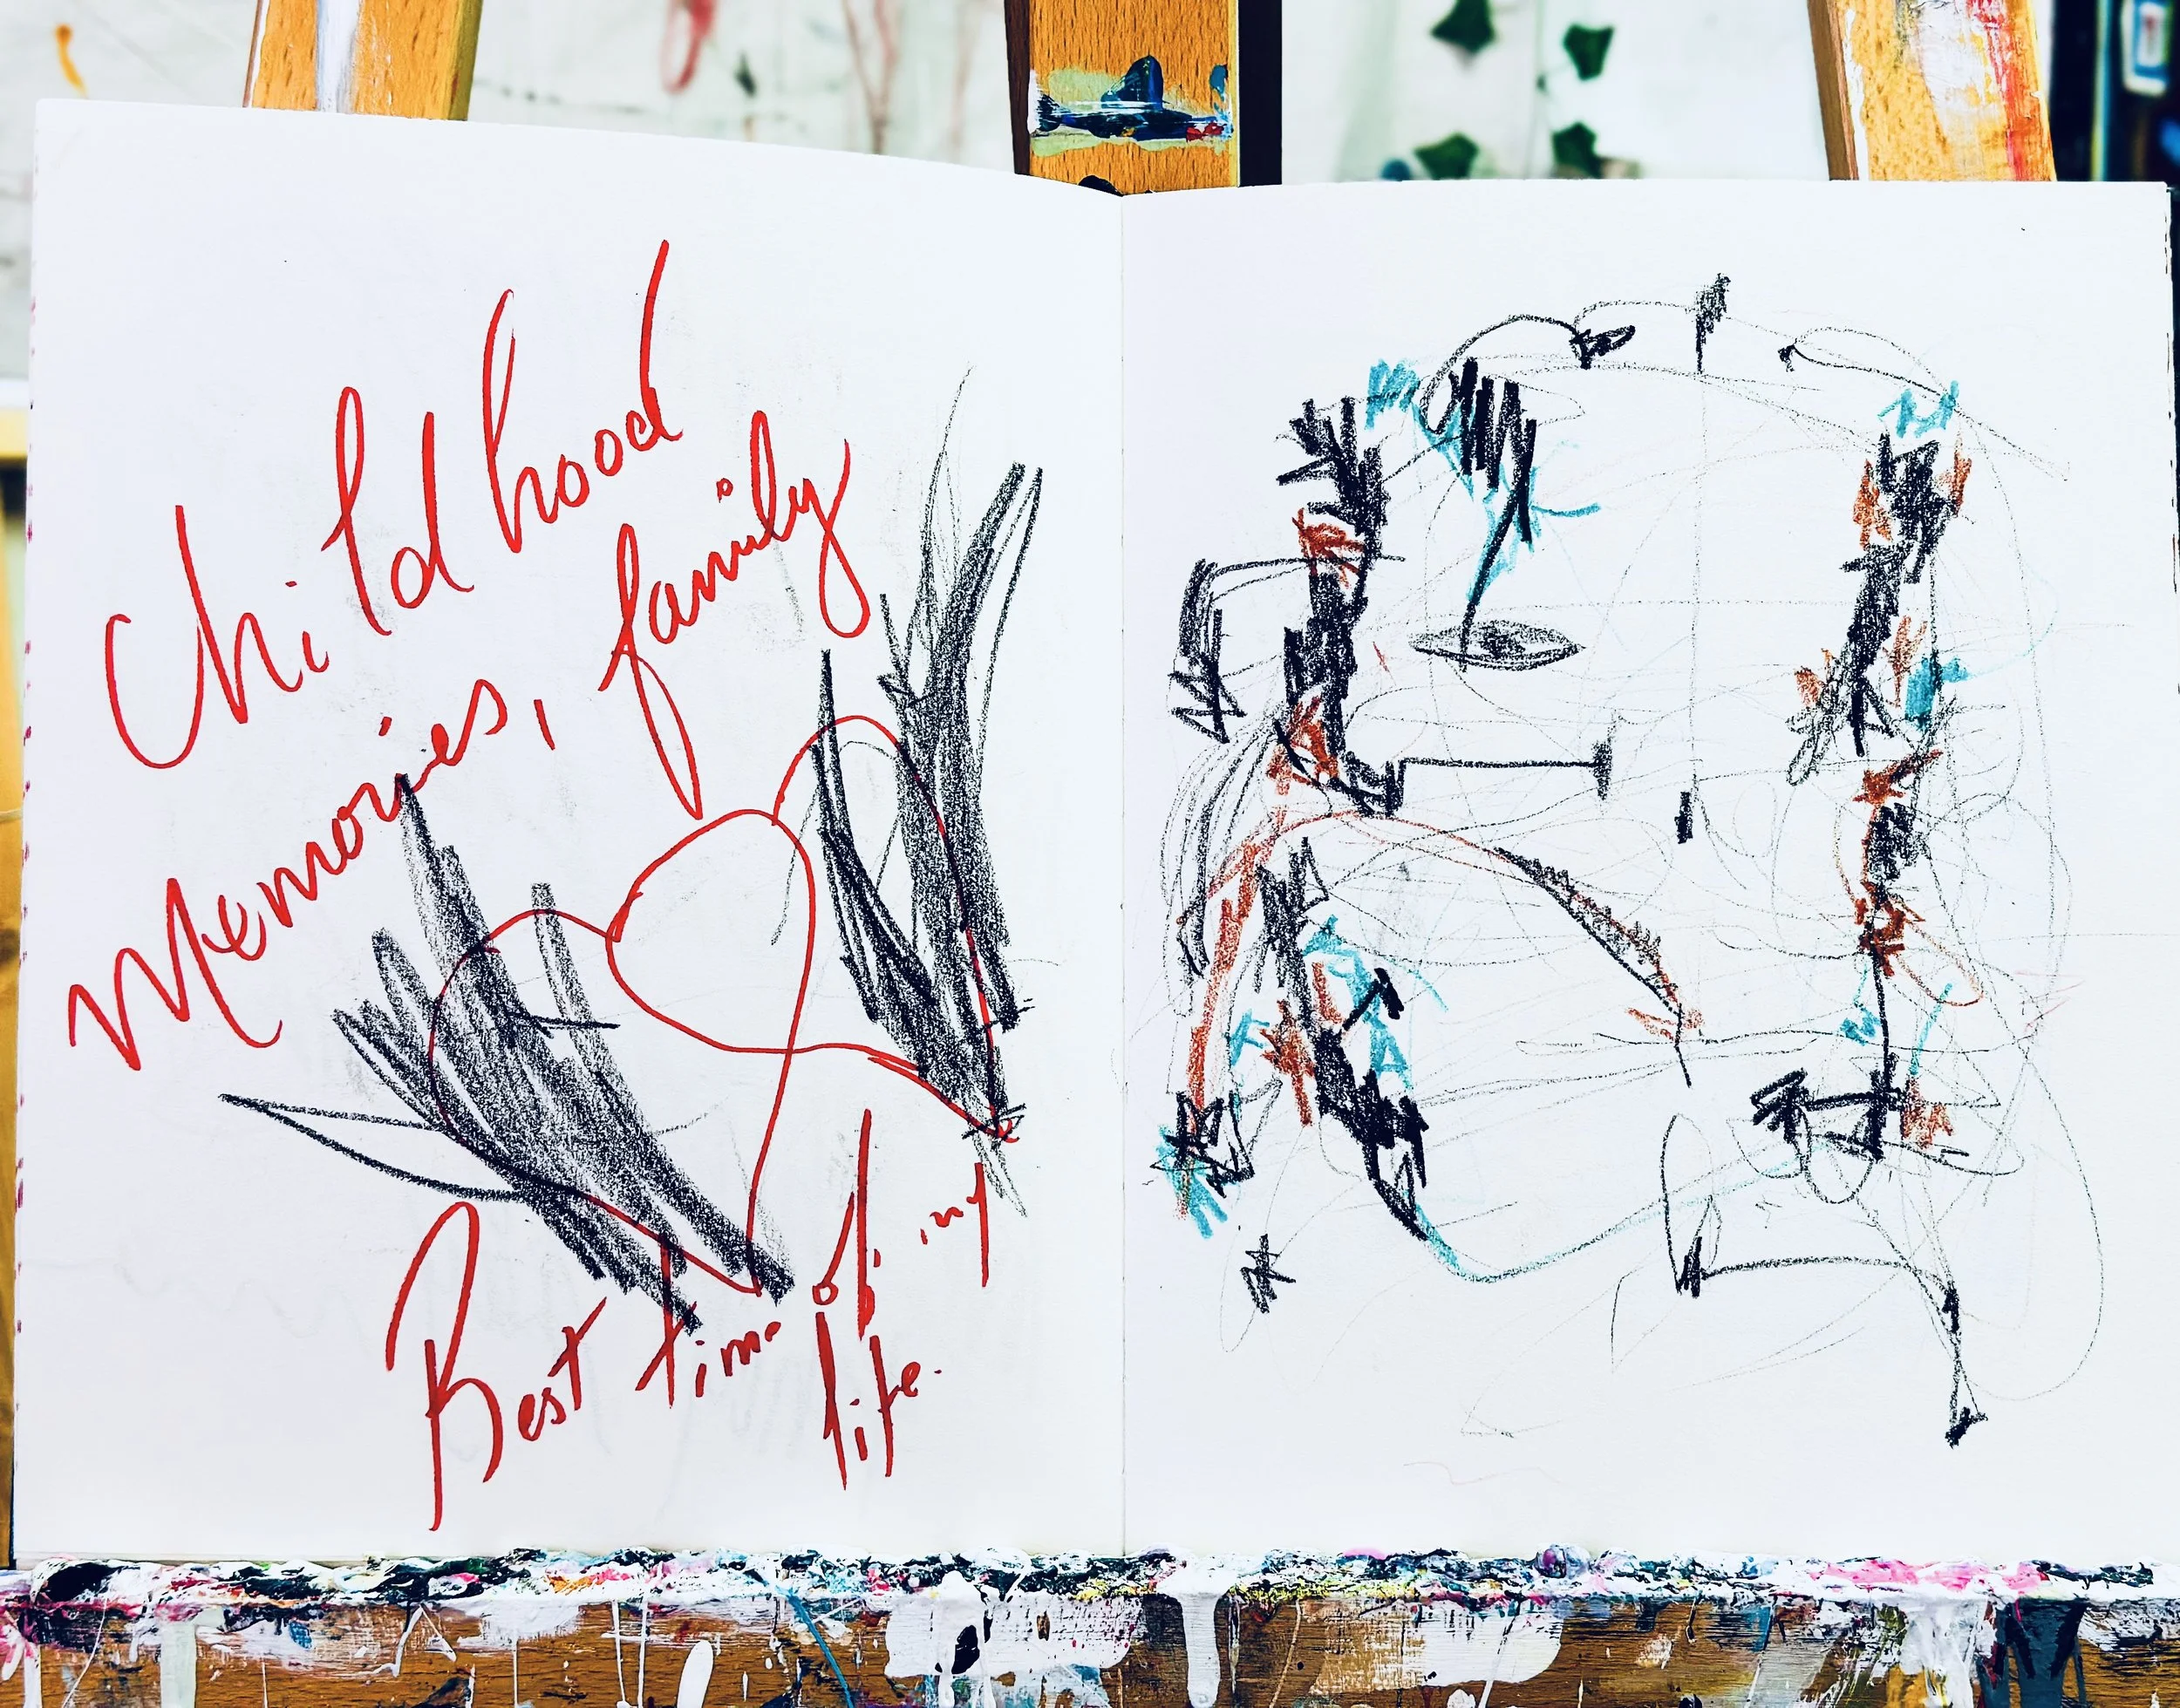 Childhood
Memories, family
Best time of my
life.